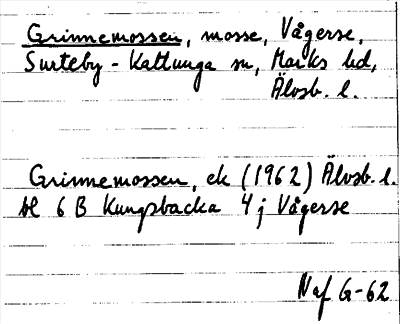 Grinnemossen, mosse, Vågerse,
Surteby-Kattunga sn, Marks hd,
Älvsb. l.
Grinnemossen, ek (1962) Älvsb. l.
bl 6 B Kungsbacka 4 j Vågerse
Naf G-62